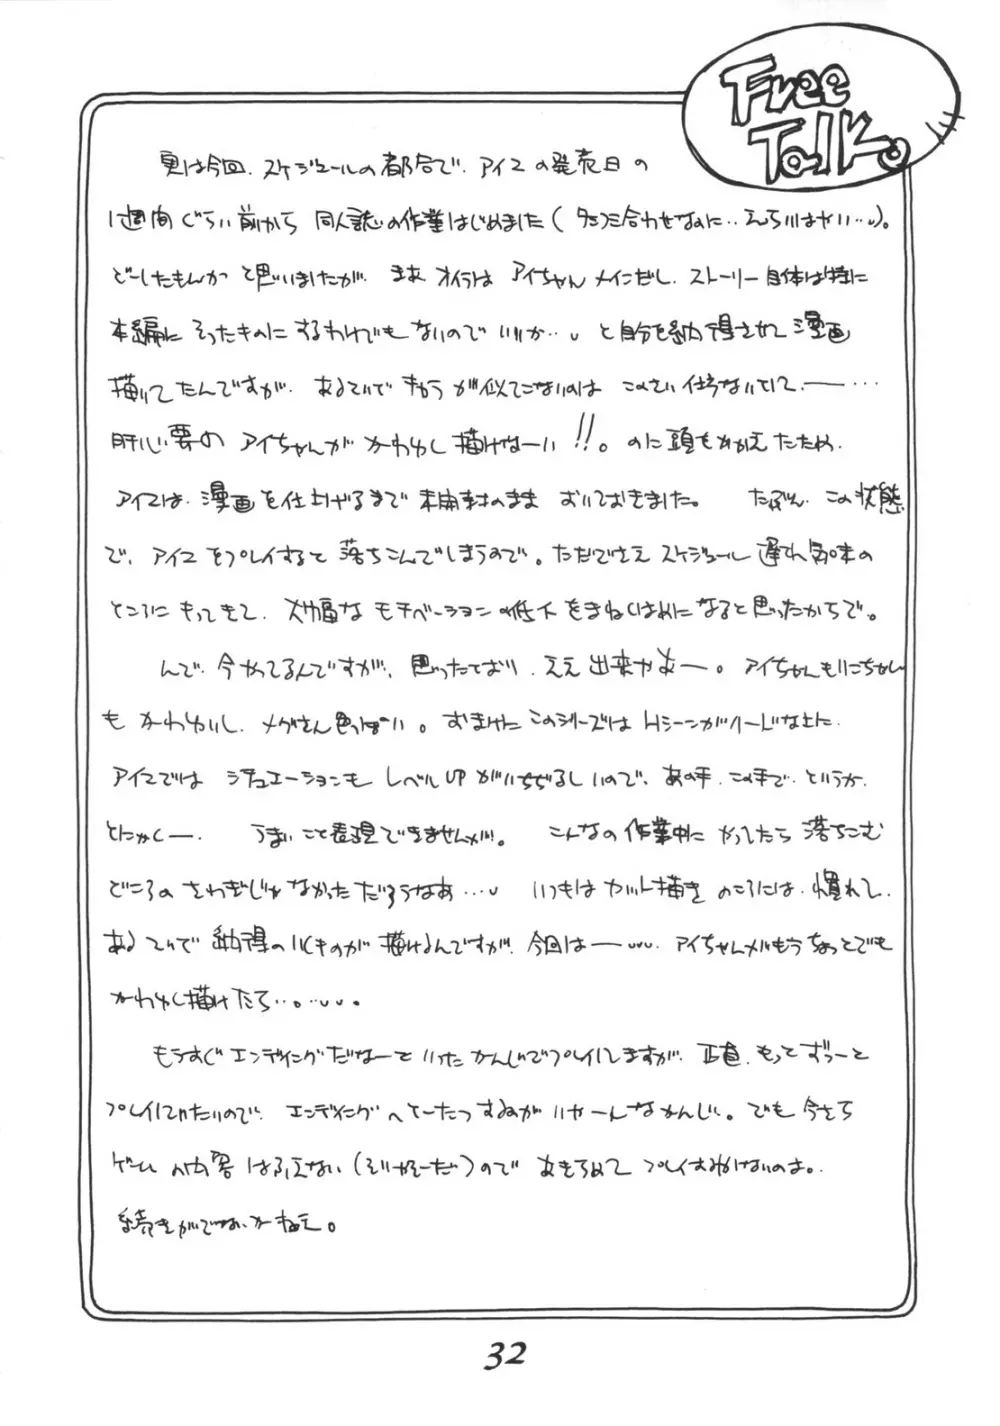 Free
Talk。
実は今回、スケジュールの都合で、アイマの発売日の
1週間ぐらい前から 同人誌の作業はじめました(タ 合わせなのに‥えらいはやい‥)。
どーしたもんか と思いましたが、まあ オイラは アイちゃん メインだし、ストーリー自体は特に
本編に そったものに するわけでもないので いいか‥ と自分を納得させて漫画
描いてたんですが、あるていで が似てこないのは このさい仕方ないとして、ー…
肝心要の アイちゃんが かわゆく描けなーい!!。のに頭をかかえたため、
アイマは、漫画を仕上げるまで 未開封のまま おいておきました。 たぶん、この状態
で、アイマをプレイすると 落ちこんでしまうので。ただでさえ スケジュール 遅れ気味の
ところに もってきて、大幅な モチベーションの低下をまねくはめになると思ったからで。
んで、今やってるんですが、思ったとおり、ええ出来やあー。アイちゃんもりこちゃん
も かわいいし、メグさん色っぽい。おまけに このシリーズは Hシーンがハードな上に、
アイマでは シチュエーションも レベルUPがいちぢるしいので、あの手、この手で、というか、
とにかくー、 うまいこと表現できませんが。 こんなの作業中に やってたら 落ちこむ
どころの さわぎじゃなかっただろうなあ…。 いつもは カット描き のころには、慣れて、
あるていで 納得のいくものが 描けるんですが、今回はー…、アイちゃん もうちょっとでも
かわゆく描けたら‥。…。
もうすぐエンディングだなーと いった かんじでプレイしてますが、正直、もっと ずっーと
プレイしてたいので、エンディングへとーたつするのが いやーんなかんじ。でも 今さら
ゲーム 内容 はふえない(そりゃそーだ)ので あきらめて プレイするしかないのよ。
続きがでないかねえ。
32